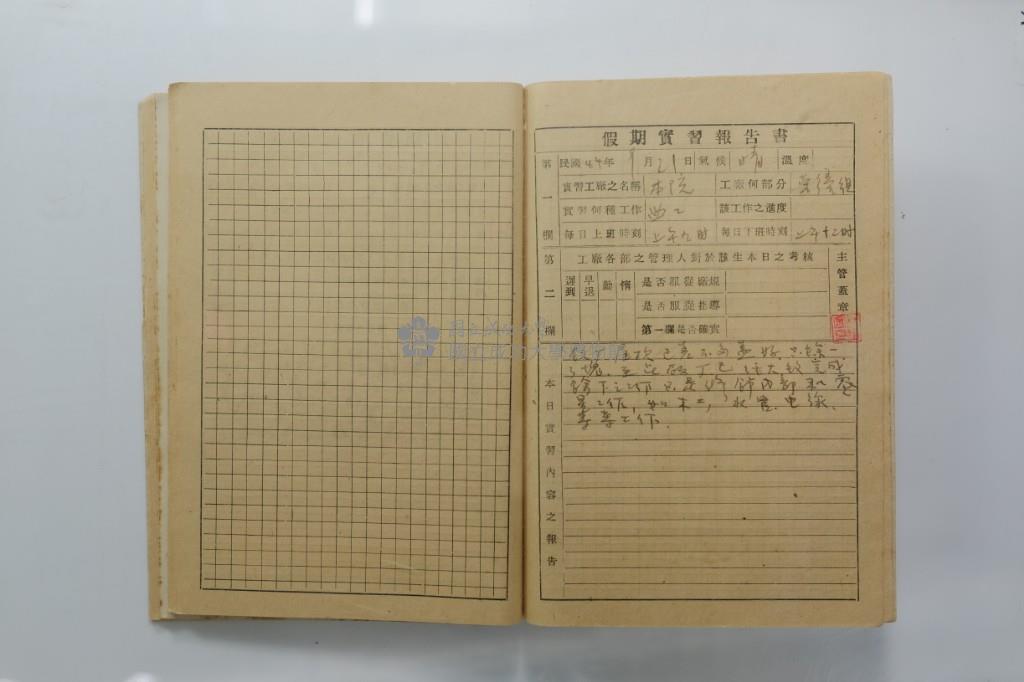 假期實習報告書
第一欄
民國44年 月21日氣候晴溫度
實習工廠之名稱 本院 工廠何部分
實習何種工作 該工作之進度
每日上班時刻 上午九時 每日下班時刻 上午十二時
第二欄
工廠各部之管理人對於該生本日之考核
主管蓋章
遲到 早退 勤 惰 是否服從廠規
是否服從指導
第一欄是否確實
國立成功大學博物館
本日實習內容之報告
已差不多蓋好,只餘一
小塊,
餘下之工作只是修飾內部和
工作,如木工,水管,电線,
等等工作.